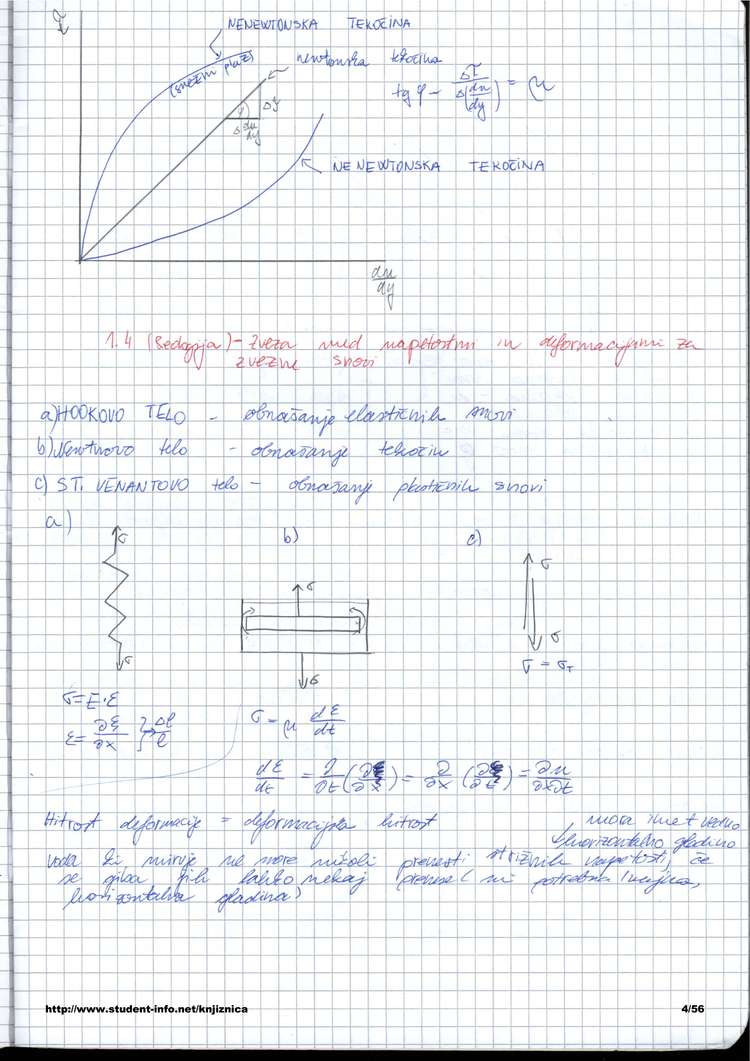 τ
NENEWTONSKA TEKOČINA
(snežni plaz)
newtonska tekočina
tg φ = Δτ / Δ(du/dy) = μ
φ
Δτ
Δ du/dy
NENEWTONSKA TEKOČINA
du/dy
1.4 - zveza med napetostmi in deformacijami za
zvezne snovi
a) HOOKOVO TELO - obnašanje elastičnih snovi
b) Newtnovo telo - obnašanje tekočin
c) ST. VENANTOVO telo - obnašanj plastičnih snovi
a)
b)
c)
σ
σ
σ
σ
σ
σ
σ = σT
σ = E·ε
ε = ∂ξ/∂x } Δl/l
σ = μ dε/dt
dε/dt = ∂/∂t (∂ξ/∂x) = ∂/∂x (∂ξ/∂t) = ∂u/∂x∂t
Hitrost deformacije = deformacijska hitrost
mora imet vedno
horizontalno gladino
voda ki miruje ne more nikoli prenesti strižnih napetosti, če
se giblje jih lahko nekaj prenese (ni potrebna
horizontalna gladina)
http://www.student-info.net/knjiznica
4/56